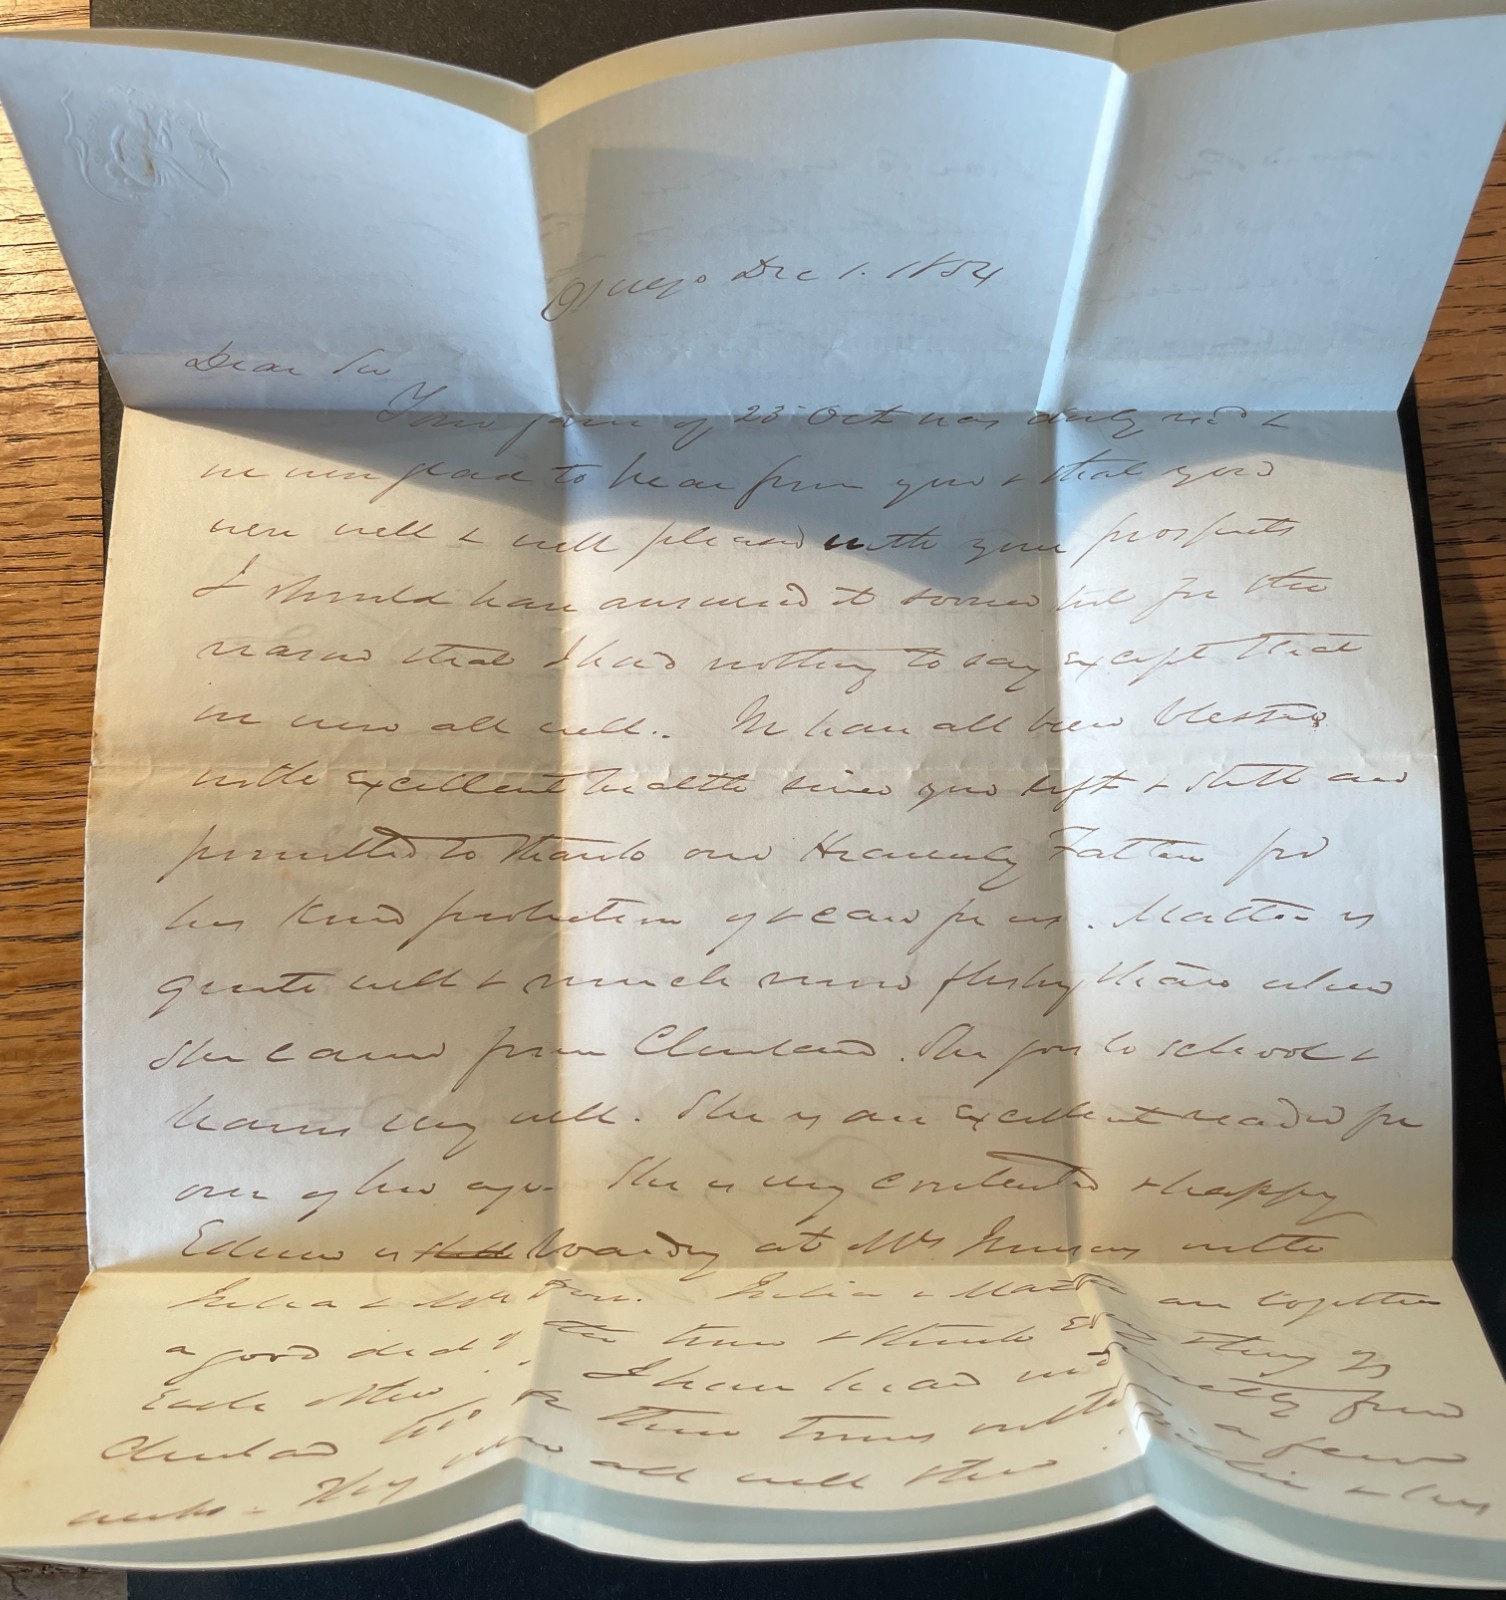 Oswego Dec 1. 1854
Dear Sir
Your favor of 23 Oct was duly rec'd &
we were glad to hear from you & that you
were well & well pleased with your prospects
I should have answered it sooner but for the
reason that I had nothing to say except that
we were all well. We have all been blessed
with excellent health since you left & still are
permitted to thank our Heavenly Father for
his kind protection of & care for us. Mattie is
quite well & much more fleshy than when
she came from Cleveland. She goes to school &
learns very well. She is an excellent reader for
one of her age. She is very contented & happy
Edwin is boarding at Mrs with
Julia & Mr Julia & Mattie are together
a good deal of the time & think every thing of
each other. I have heard directly from
Cleveland two or three times within a few
weeks. They were all well then. & his